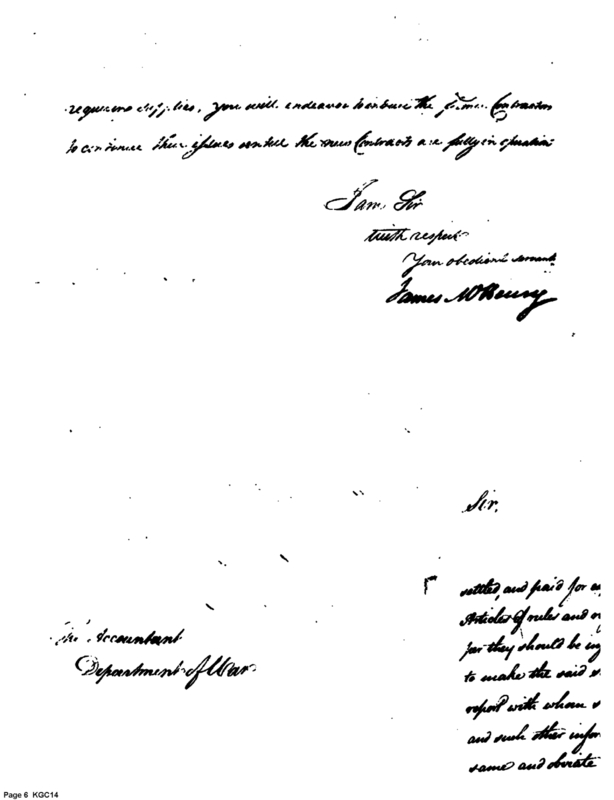 requiring supplies, you will endeavor to induce the former Contractors
to continue their issues untill the new Contracts are fully in operation
I am, Sir
with respect
Your obedient servant
James McHenry
Sir,
settled, and paid for
Articles of rules and
far they should be
to make the said
report with whom
and such other
same and obviate
The Accountant
Department of War
Page 6 KGC14